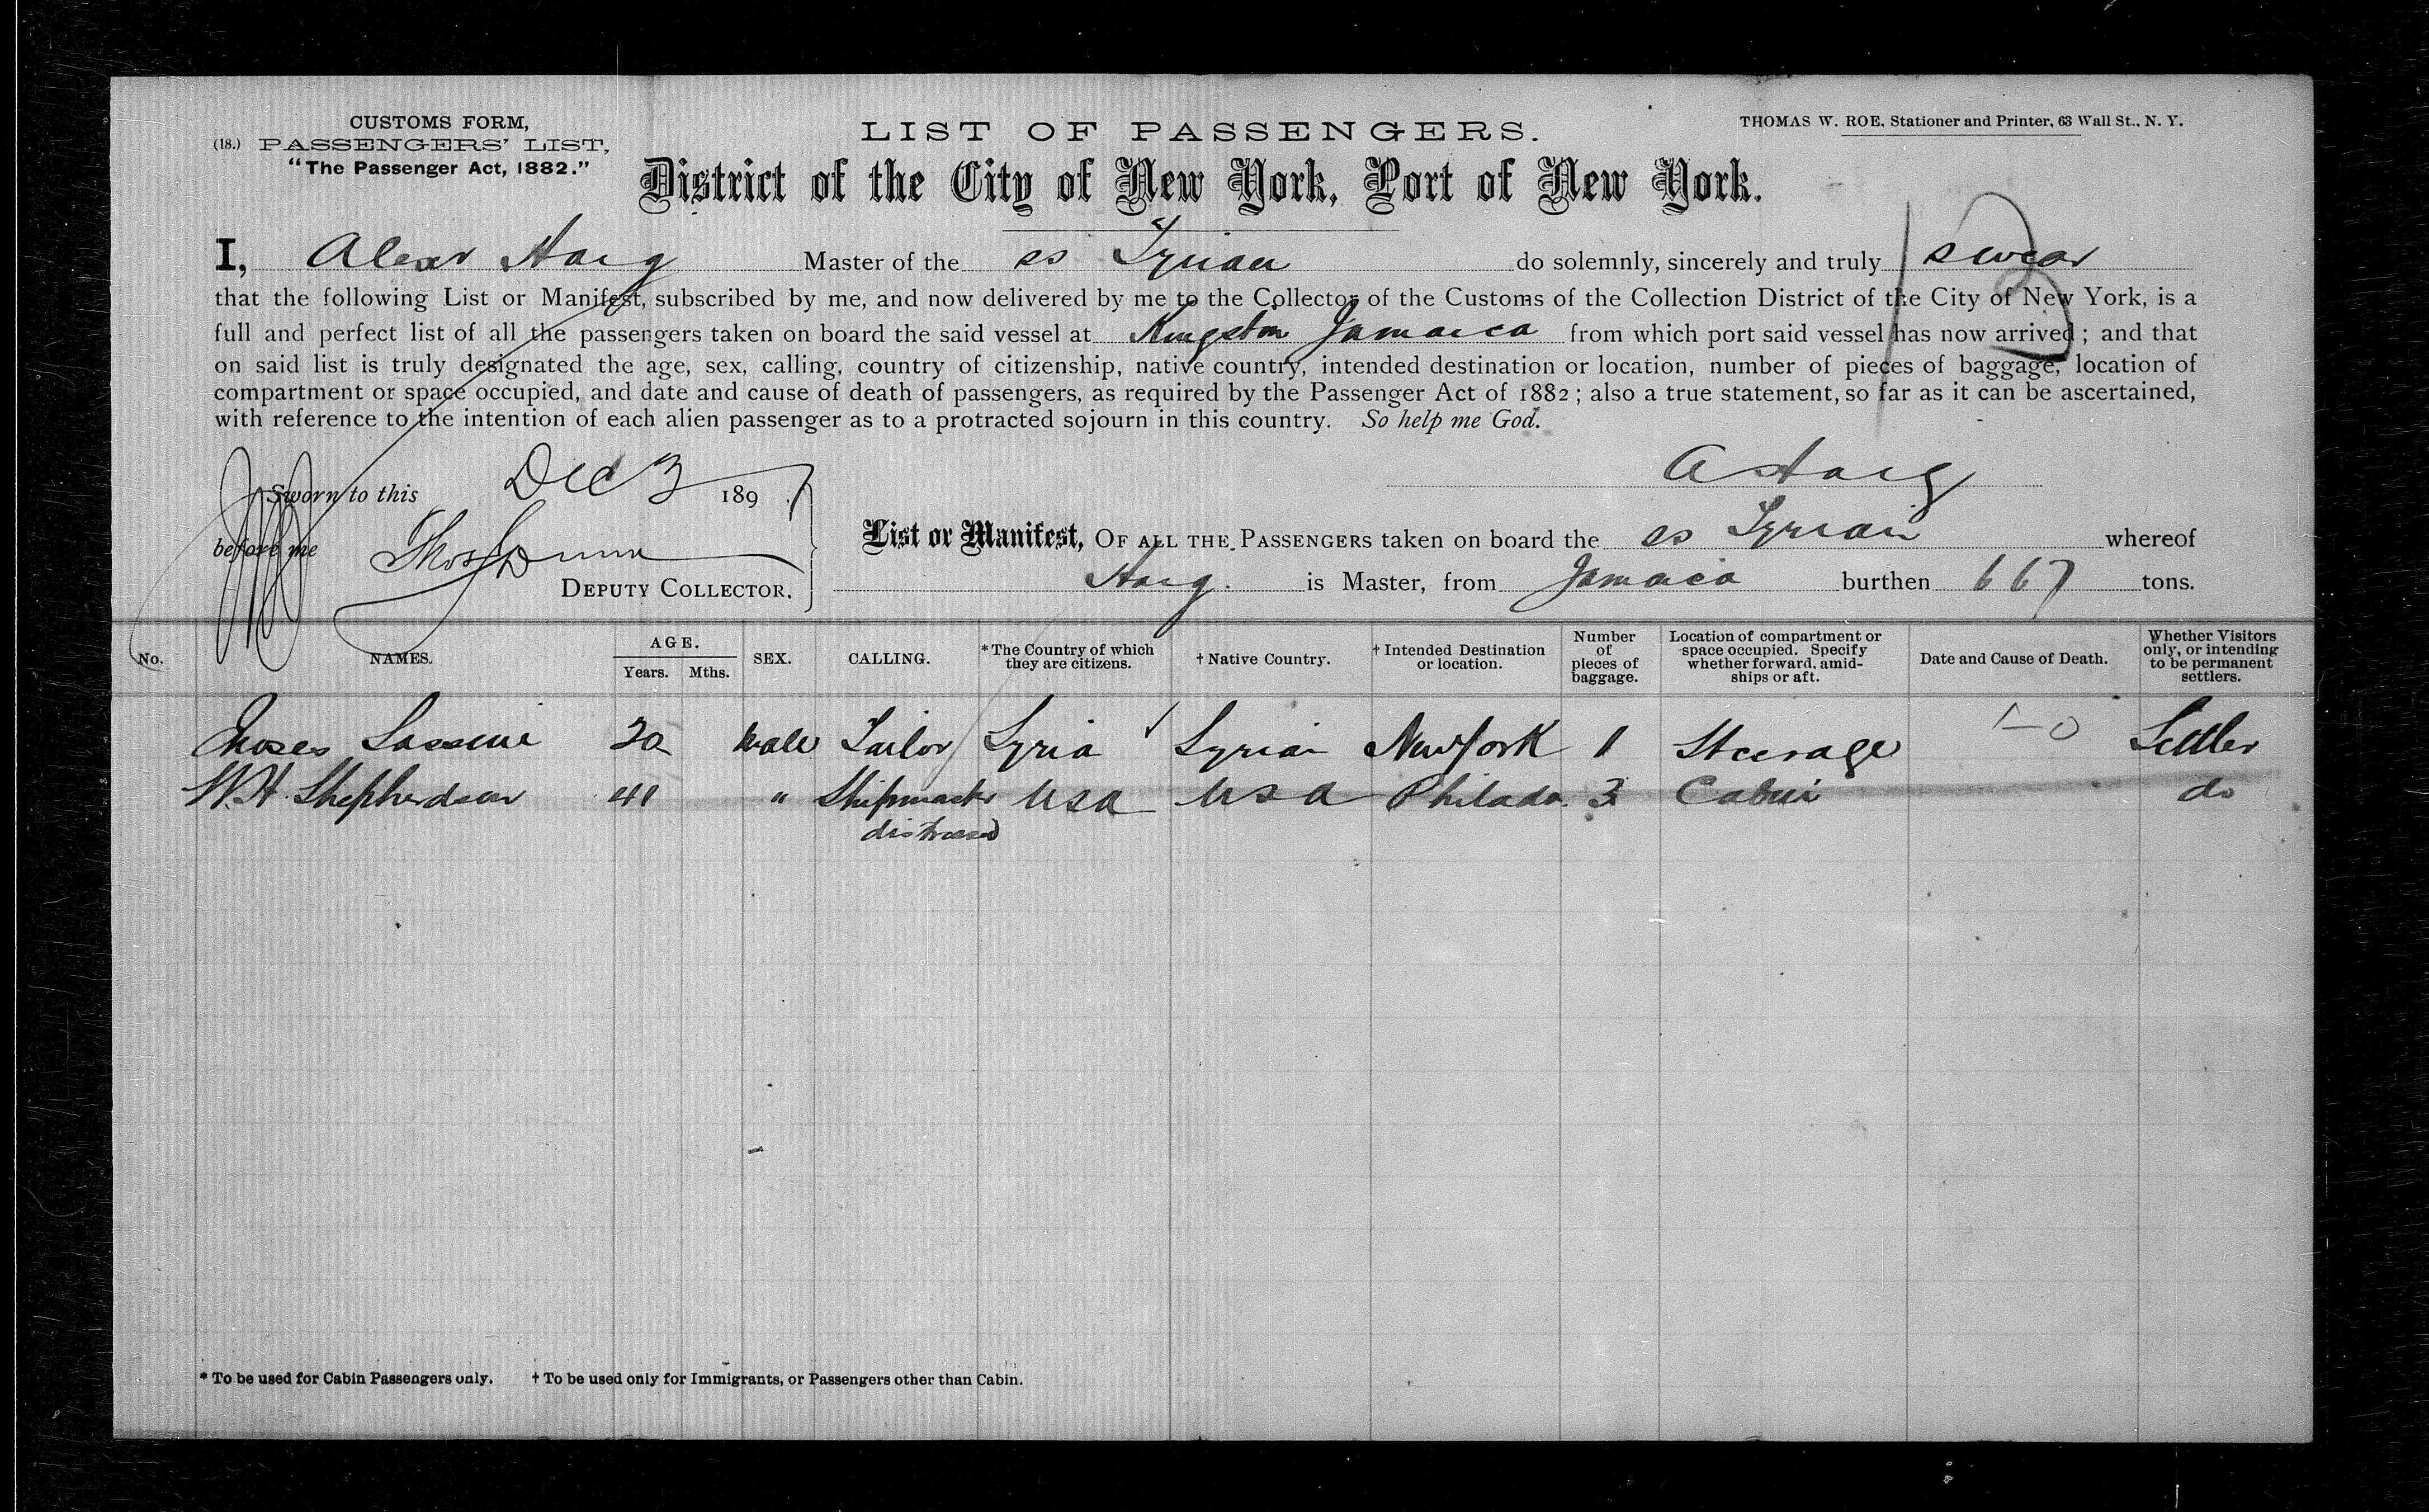 CUSTOMS FORM,
(18.) PASSENGERS' LIST,
"The Passenger Act, 1882."
LIST OF PASSENGERS.
THOMAS W. ROE, Stationer and Printer, 63 Wall St., N. Y.
District of the City of New York, Port of New York.
I, Alexr Haig Master of the ss Tyrian do solemnly, sincerely and truly swear
that the following List or Manifest, subscribed by me, and now delivered by me to the Collector of the Customs of the Collection District of the City of New York, is a
full and perfect list of all the passengers taken on board the said vessel at Kingston Jamaica from which port said vessel has now arrived; and that
on said list is truly designated the age, sex, calling, country of citizenship, native country, intended destination or location, number of pieces of baggage, location of
compartment or space occupied, and date and cause of death of passengers, as required by the Passenger Act of 1882; also a true statement, so far as it can be ascertained,
with reference to the intention of each alien passenger as to a protracted sojourn in this country. So help me God.
A Haig
Sworn to this Dec 3 1897
before me Thos Dunn
DEPUTY COLLECTOR.
List or Manifest, OF ALL THE PASSENGERS taken on board the ss Tyrian whereof
Haig. is Master, from Jamaica burthen 667 tons.
No. NAMES. AGE. Years. Mths. SEX. CALLING. *The Country of which they are citizens. †Native Country. †Intended Destination or location. Number of pieces of baggage. Location of compartment or space occupied. Specify whether forward, amidships or aft. Date and Cause of Death. Whether Visitors only, or intending to be permanent settlers.
Moses 20 Male Tailor Syria Syrian New York 1 Steerage Settler
W. H. Shepherdson 41 " Shipmaster USA USA Philada. 3 Cabin do
distressed
* To be used for Cabin Passengers only. † To be used only for Immigrants, or Passengers other than Cabin.